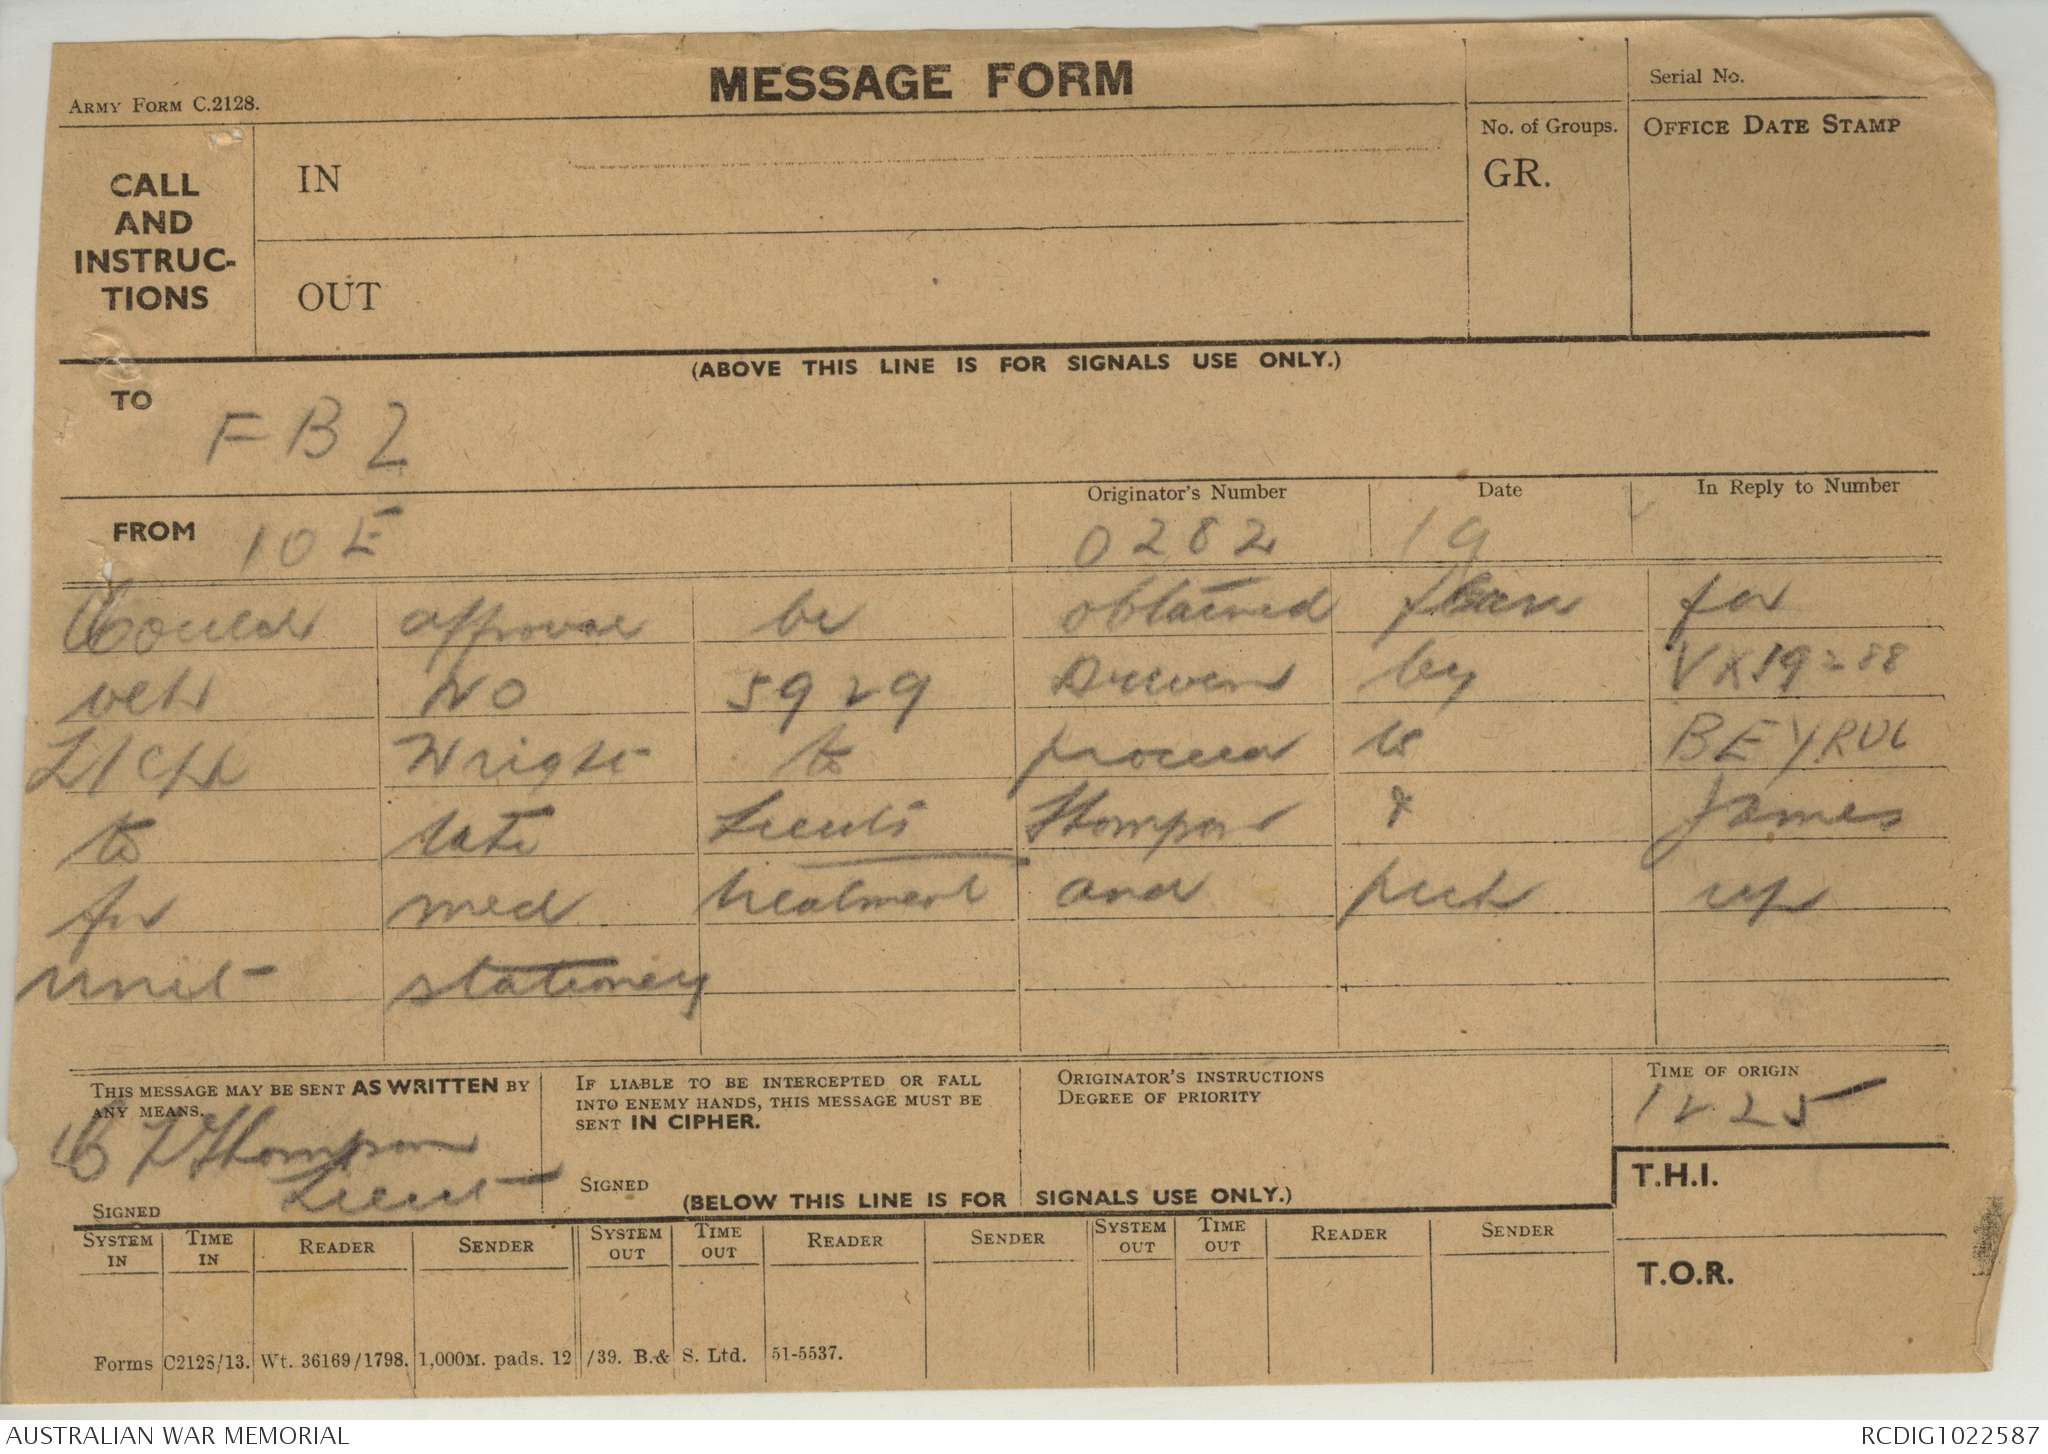 MESSAGE FORM
Serial No.
ARMY FORM C.2128.
No. of Groups.
OFFICE DATE STAMP
CALL
AND
INSTRUC-
TIONS
IN
GR.
OUT
(ABOVE THIS LINE IS FOR SIGNALS USE ONLY.)
TO
FB2
Originator's Number
Date
In Reply to Number
FROM 10 E 0282 19
Could approval be obtained for
veh NO 5929 Driven by VX19288
L/Cpl Wright to proceed to
to take Lieuts Thompson & James
for med treatment and pick up
unit stationery
THIS MESSAGE MAY BE SENT AS WRITTEN BY
ANY MEANS.
Thompson
Lieut
SIGNED
IF LIABLE TO BE INTERCEPTED OR FALL
INTO ENEMY HANDS, THIS MESSAGE MUST BE
SENT IN CIPHER.
SIGNED
ORIGINATOR'S INSTRUCTIONS
DEGREE OF PRIORITY
TIME OF ORIGIN
1225
(BELOW THIS LINE IS FOR SIGNALS USE ONLY.)
T.H.I.
T.O.R.
SYSTEM IN TIME IN READER SENDER SYSTEM OUT TIME OUT READER SENDER SYSTEM OUT TIME OUT READER SENDER
Forms C2128/13. Wt. 36169/1798. 1,000M. pads. 12/39. B.& S. Ltd. 51-5537.
AUSTRALIAN WAR MEMORIAL
RCDIG1022587